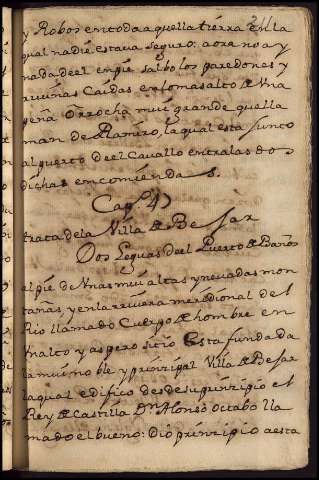 y Robos en toda aquella tierra en la
qual nadie estava seguro: aora no ay
nada de el en pie salbo los paredones y
ruuinas Caidas en lo mas alto de Vna
peña O rrocha mui grande que lla
man de Ramiro, la qual esta junto
al puerto de el Cavallo entra las dos
dichas encomiendas.
Capº. 4º
trata de la Villa de Besar
Dos Leguas de el Puerto de Baños
al pie de Vnas mui altas y nevadas mon
tañas, y en la riuera meridional de l
Rio llamado Cuerpo de hombre en
vn alto y aspero sitio Esta fundada
la mui noble y prinzipal Villa de Besar
la qual edifico desde su prinzipio el
Rey de Castilla Dn. Alonso octabo lla
mado el bueno: Dio prinzipio a esta